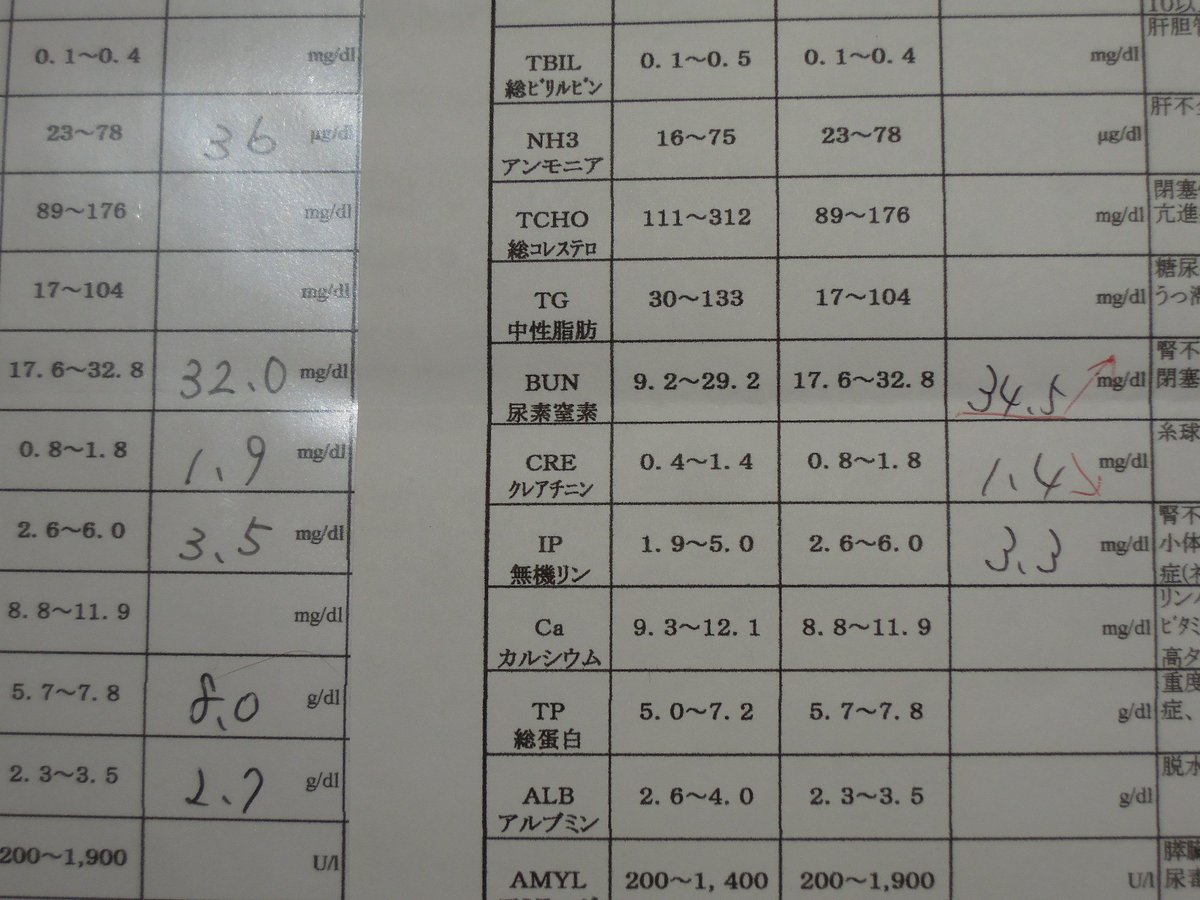 0.1～0.4 mg/dl
23～78 36 μg/dl
89～176 mg/dl
17～104 mg/dl
17.6～32.8 32.0 mg/dl
0.8～1.8 1.9 mg/dl
2.6～6.0 3.5 mg/dl
8.8～11.9 mg/dl
5.7～7.8 8.0 g/dl
2.3～3.5 2.7 g/dl
200～1,900 U/l
肝胆
TBIL 0.1～0.5 0.1～0.4 mg/dl
総ﾋﾞﾘﾙﾋﾞﾝ
肝不
NH3 16～75 23～78 μg/dl
アンモニア
閉塞
TCHO 111～312 89～176 mg/dl 亢進
総ｺﾚｽﾃﾛ
糖尿
TG 30～133 17～104 mg/dl うっ
中性脂肪
腎不
BUN 9.2～29.2 17.6～32.8 34.5 mg/dl 閉塞
尿素窒素
糸球
CRE 0.4～1.4 0.8～1.8 1.4 mg/dl
ｸﾚｱﾁﾆﾝ
腎不
IP 1.9～5.0 2.6～6.0 3.3 mg/dl 小体
無機リン 症(
リン
Ca 9.3～12.1 8.8～11.9 mg/dl ﾋﾞﾀﾐ
カルシウム 高タ
重度
TP 5.0～7.2 5.7～7.8 g/dl 症、
総蛋白
脱水
ALB 2.6～4.0 2.3～3.5 g/dl
アルブミン
膵臓
AMYL 200～1,400 200～1,900 U/l 尿毒